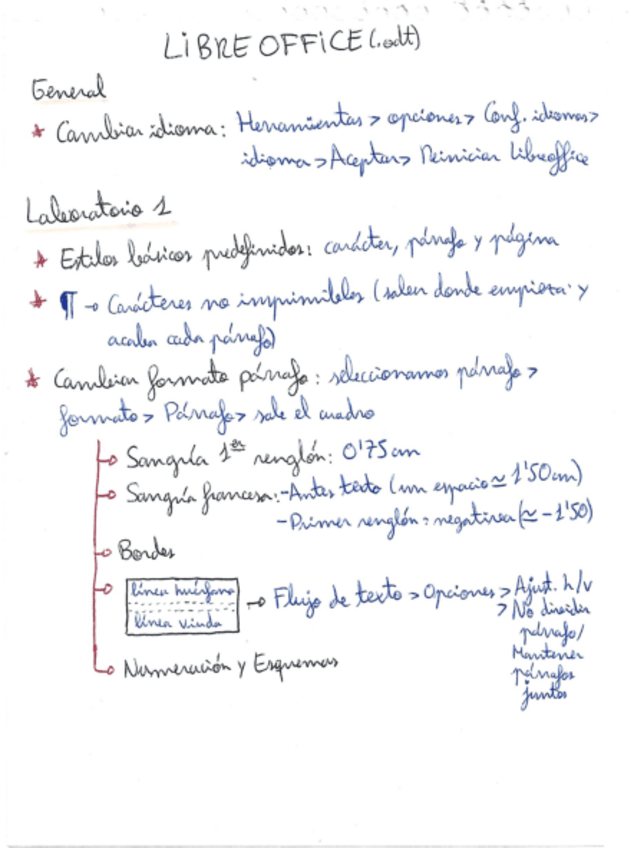 LIBRE OFFICE (.odt)
General
* Cambiar idioma: Herramientas > opciones > Conf. idiomas >
idioma > Aceptar > Reiniciar Libreoffice
Laboratorio 1
* Estilos básicos predefinidos: carácter, párrafo y página
* ¶ → Carácteres no imprimibles (salen donde empieza y
acaba cada párrafo)
* Cambiar formato párrafo: seleccionamos párrafo >
formato > Párrafo > sale el cuadro
→ Sangría 1er renglón: 0'75 cm
→ Sangría francesa: - Antes texto (un espacio ≃ 1'50cm)
- Primer renglón: negativa (≃ -1'50)
→ Bordes
→ línea huérfana → Flujo de texto > Opciones > Ajust. h/v
línea viuda > No dividir
párrafo/
Mantener
párrafos
juntos
→ Numeración y Esquemas